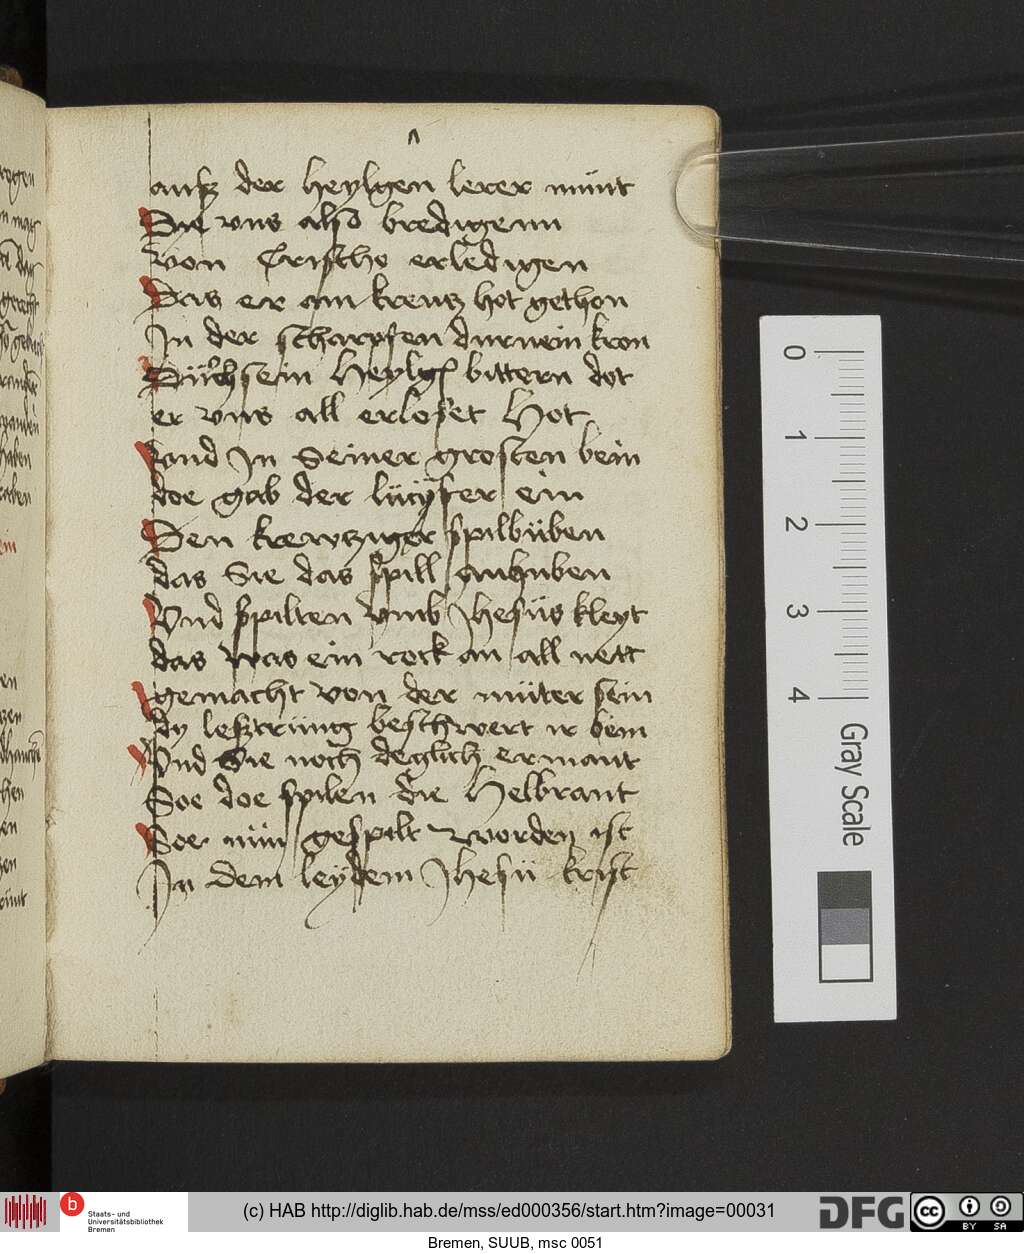 ausz der heylgen lerer münt
Die vns also bredigenn
von Cristho erledigen
Das er am kreutz hot gethon
In der scharpfen durnein kron
Dürch sein Heylgen bittern dot
er vns all erloset Hot
vond In Seiner grosten bein
doe gab der lücyfer ein
Den krewtziger spilbüben
das Sie das spill anhuben
Vnd spilten vmb Jhesüs kleyt
das was ein rock an all nett
gemacht von der müter sein
dy lesztrüng beschwert ir bein
Vnd Sie noch deglich ermant
Soe doe spilen die Helbrant
Soe nün gespilt worden ist
In dem leydem Jhesü krist
0
1
2
3
4
Gray Scale
b
Staats- und
Universitätsbibliothek
Bremen
(c) HAB http://diglib.hab.de/mss/ed000356/start.htm?image=00031
DFG
cc
BY SA
Bremen, SUUB, msc 0051